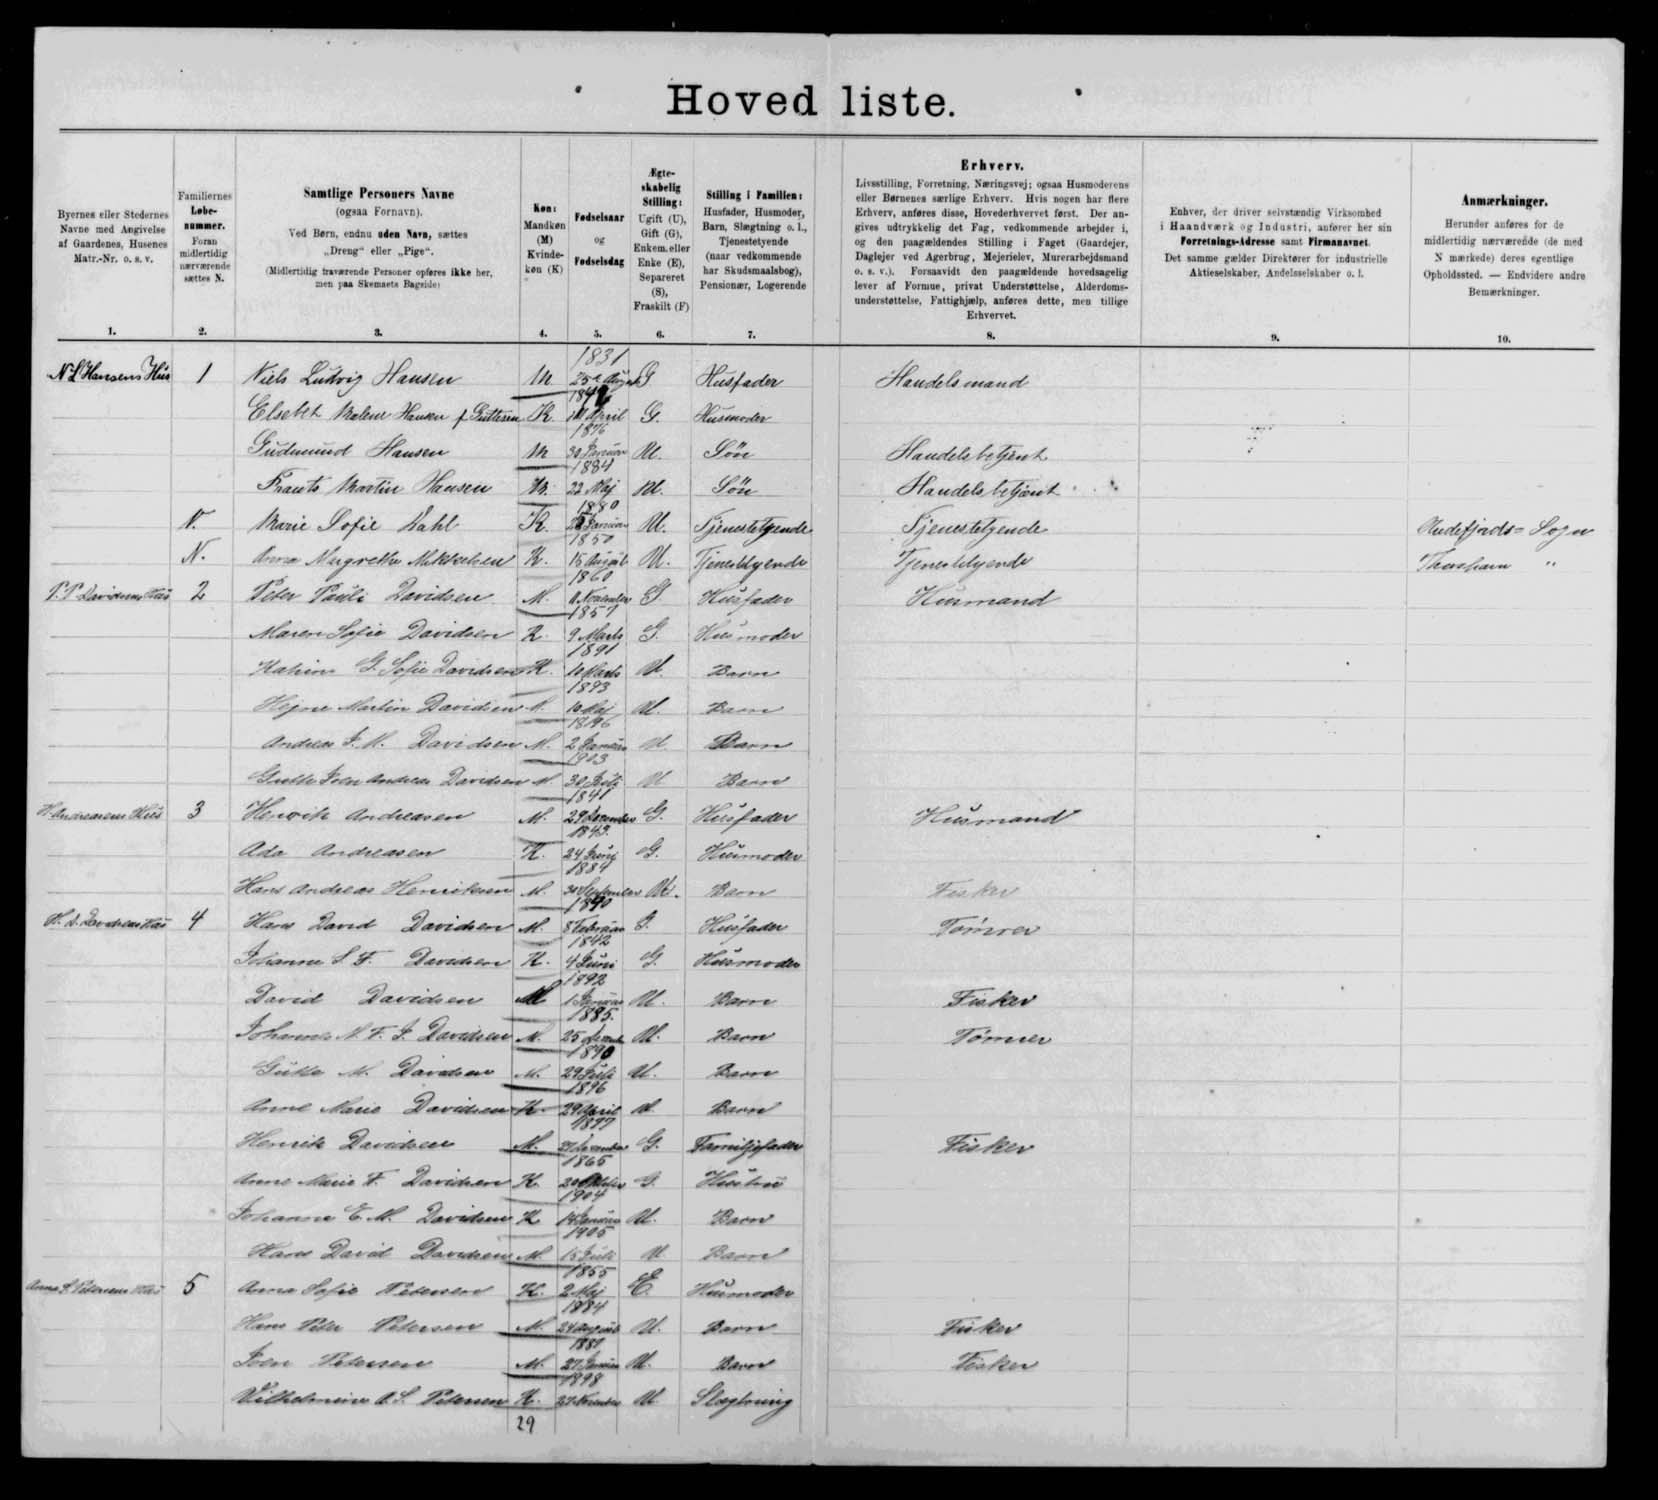 Hovedliste.
Byernes eller Stedernes Navne med Angivelse af Gaardenes, Husenes Matr.-Nr. o. s. v.
1.
Familiernes Løbenummer. Foran midlertidig nærværende sættes N.
2.
Samtlige Personers Navne
(ogsaa Fornavn).
Ved Børn, endnu uden Navn, sættes „Dreng“ eller „Pige“.
(Midlertidig fraværende Personer opføres ikke her, men paa Skemaets Bagside)
3.
Køn: Mandkøn (M) Kvindekøn (K)
4.
Fødselsaar og Fødselsdag
5.
Ægteskabelig Stilling: Ugift (U), Gift (G), Enkem. eller Enke (E), Separeret (S), Fraskilt (F)
6.
Stilling i Familien: Husfader, Husmoder, Barn, Slægtning o. l., Tjenestetyende (naar vedkommende har Skudsmaalsbog), Pensionær, Logerende
7.
Erhverv.
Livsstilling, Forretning, Næringsvej; ogsaa Husmoderens eller Børnenes særlige Erhverv. Hvis nogen har flere Erhverv, anføres disse, Hovederhvervet først. Der angives udtrykkelig det Fag, vedkommende arbejder i, og den paagældendes Stilling i Faget (Gaardejer, Daglejer ved Agerbrug, Mejerielev, Murerarbejdsmand o. s. v.). Forsaavidt den paagældende hovedsagelig lever af Formue, privat Understøttelse, Alderdomsunderstøttelse, Fattighjælp, anføres dette, men tillige Erhvervet.
8.
Enhver, der driver selvstændig Virksomhed i Haandværk og Industri, anfører her sin Forretnings-Adresse samt Firmanavnet. Det samme gælder Direktører for industrielle Aktieselskaber, Andelsselskaber o. l.
9.
Anmærkninger.
Herunder anføres for de midlertidig nærværende (de med N mærkede) deres egentlige Opholdssted. — Endvidere andre Bemærkninger.
10.
N L Hansens Hus 1 Niels Ludvig Hansen M 1831 25de August G Husfader Handelsmand
Elsebet Malene Hansen f. Guttesen K. April G. Husmoder
Gudmund Hansen M 1876 30 Januar U. Søn Handelsbetjent
Frants Martin Hansen M. 1884 22 Maj U. Søn Handelsbetjent
N. Marie Sofie Dahl K. 1880 Januar U. Tjenestetyende Tjenestetyende Sogn
N. Anna Margrethe Mikkelsen K. 1850 15 August U. Tjenestetyende Tjenestetyende Thorshavn "
P. P Davidsens Hus 2 Peter Pauli Davidsen M. 1860 November G Husfader Husmand
Maren Sofie Davidsen K. 1857 9 Marts G. Husmoder
Katrine G. Sofie Davidsen K. 1891 10 Marts U. Barn
Martin Davidsen M. 1893 10 Maj U. Barn
Andreas J. M. Davidsen M. 1896 2 Januar U Barn
Gutte Joen Andreas Davidsen M 1903 30 Juli U Barn
H. Andreasens Hus 3 Henrik Andreasen M. 1841 29 December G. Husfader Husmand
Ada Andreasen K. 1843. 24 Juni G. Husmoder
Hans Andreas Henriksen M. 1884 30 September U. Barn Fisker
H. D. Davidsens Hus 4 Hans David Davidsen M. 1840 8 Februar G. Husfader Tømrer
Johanne S. F. Davidsen K. 1842 4 Juni G. Husmoder
David Davidsen M 1 Januar U. Barn Fisker
Johannes M. F. J. Davidsen M. 1885. 25 U. Barn Tømrer
Gutte M. Davidsen M. 1890 29 Juli U. Barn
Anne Marie Davidsen K. 1896 29 April U. Barn
Henrik Davidsen M. G. Familjefader Fisker
Anne Marie F. Davidsen K. 1865 20 Oktober G. Hustru
Johanne E. M. Davidsen K 1904 14 Januar U. Barn
Hans David Davidsen M 1905 15 Juli U. Barn
Anna S. Petersens Hus 5 Anna Sofie Petersen K. 1855 2 Maj E. Husmoder
Hans Peter Petersen M. 1884 24 August U. Barn Fisker
Joen Petersen M. 27 Januar U. Barn Fisker
Vilhelmine A. S. Petersen K. 1898 27 November U. Slægtning
29